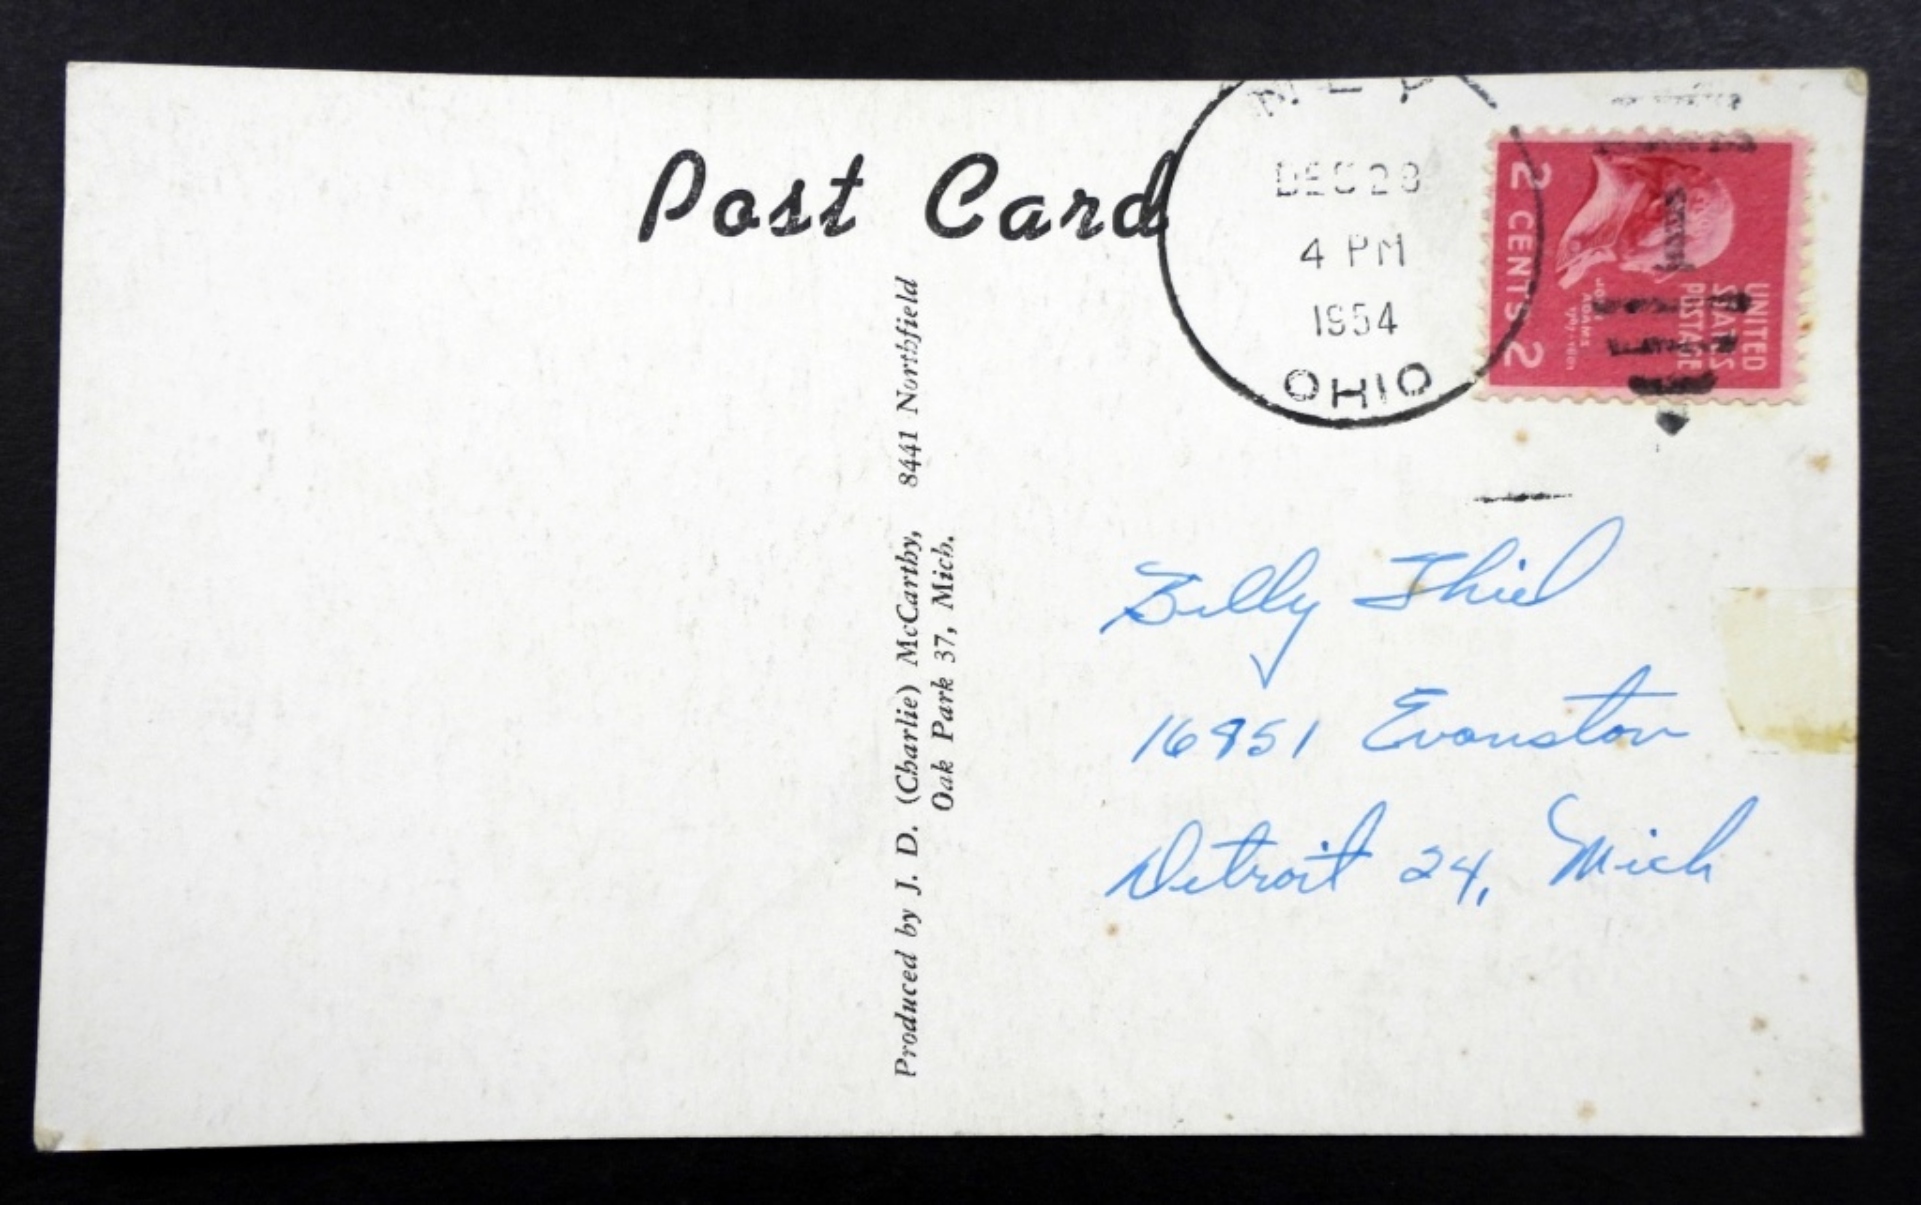 Post Card
DEC 28
4 PM
1954
OHIO
2 CENTS 2
JOHN ADAMS
1797-1801
UNITED
STATES
POSTAGE
Produced by J. D. (Charlie) McCarthy, 8441 Northfield
Oak Park 37, Mich.
Billy Thiel
16851 Evanston
Detroit 24, Mich